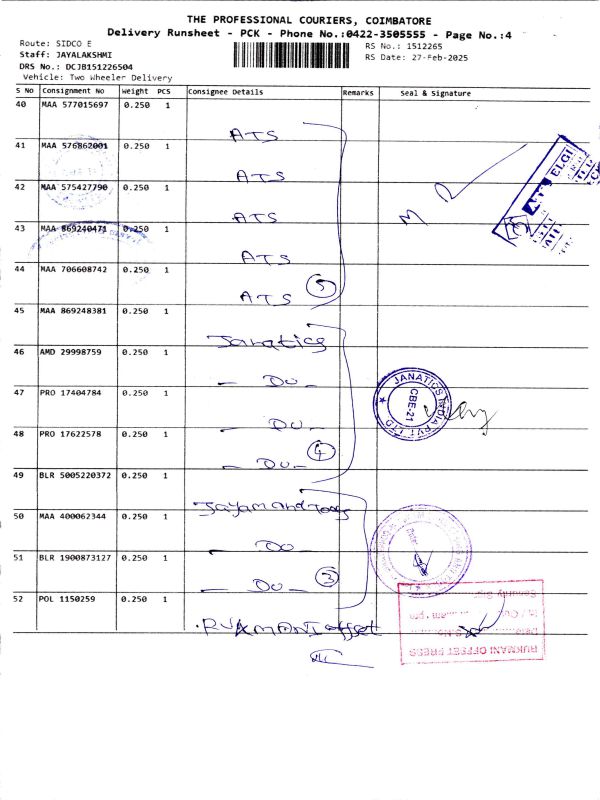 THE PROFESSIONAL COURIERS, COIMBATORE
Delivery Runsheet - PCK - Phone No.:0422-3505555 - Page No.:4
Route: SIDCO E
RS No.: 1512265
Staff: JAYALAKSHMI
RS Date: 27-Feb-2025
DRS No.: DCJB151226504
Vehicle: Two Wheeler Delivery
S No Consignment No Weight PCS Consignee Details Remarks Seal & Signature
40 MAA 577015697 0.250 1
ATS
41 MAA 576862001 0.250 1
ATS
42 MAA 575427790 0.250 1
ATS
43 MAA 869240471 0.250 1
ATS
44 MAA 706608742 0.250 1
ATS 5
45 MAA 869248381 0.250 1
Janatics
46 AMD 29998759 0.250 1
- DO -
47 PRO 17404784 0.250 1
- DO -
48 PRO 17622578 0.250 1
- DO - 4
49 BLR 5005220372 0.250 1
50 MAA 400062344 0.250 1
DO
51 BLR 1900873127 0.250 1
- DO - 3
52 POL 1150259 0.250 1
RUKMANI offset
ELGI
JANATICS INDIA PVT LTD
CBE-21
RUKMANI OFFSET PRESS